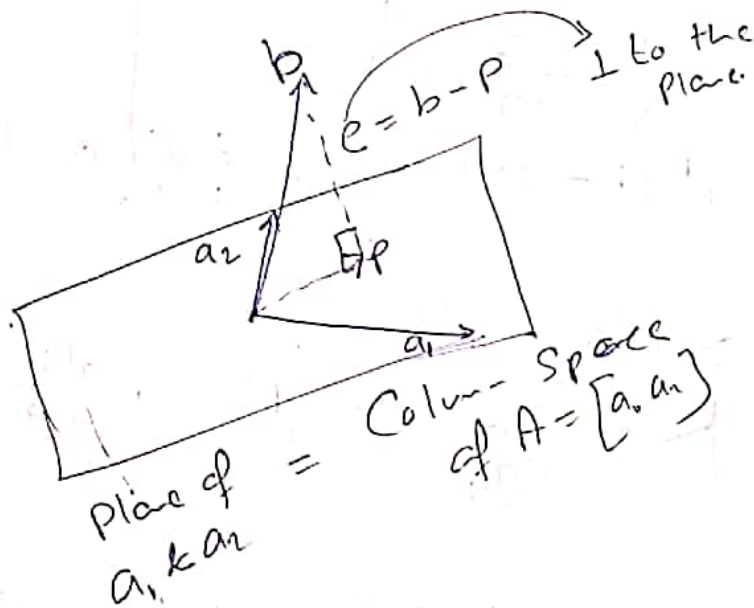 b
e = b - p
⊥ to the
plane.
a₂
p
a₁
Plane of = Column Space
a₁ & a₂ of A = [a₁ a₂]